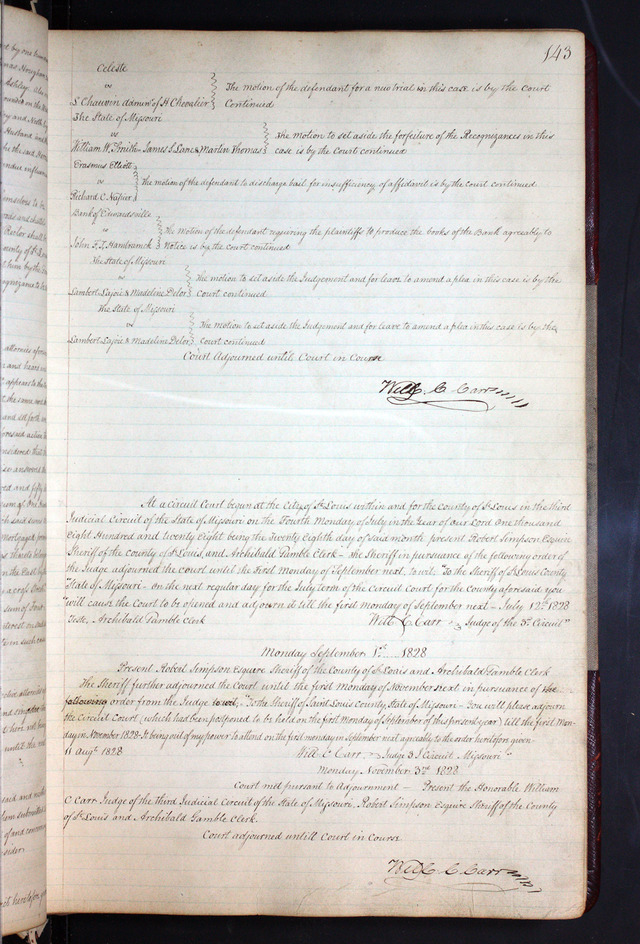 143
Celeste
vs
S. Chauvin admr of H Chevalier
The motion of the defendant for a new trial in this case is by the Court
Continued
The State of Missouri
vs
William W. Smith James S Lane & Martin Thomas
The motion to set aside the forfeiture of the Recognizances in this
case is by the Court continued
Erasmus Elliott
vs
Richard C Napier
The motion of the defendant to discharge bail for insufficiency of affidavit is by the court continued
Bank of Edwardsville
vs
John F. J. Hamtramck
The motion of the defendant requiring the plaintiffs to produce the books of the Bank agreeably to
Notice is by the court continued
The State of Missouri
vs
Lambert Lajoie & Madeline Delor
The motion to set aside the Judgement and for leave to amend a plea in this case is by the
Court continued
The State of Missouri
vs
Lambert Lajoie & Madeline Delor
The motion to set aside the Judgement and for leave to amend a plea in this case is by the
Court continued
Court Adjourned until Court in Course
Will. C. Carr
At a Circuit Court begun at the City of St Louis within and for the County of St Louis in the third
Judicial Circuit of the State of Missouri on the Fourth Monday of July in the Year of our Lord One thousand
Eight Hundred and twenty Eight being the Twenty Eighth day of said month present Robert Simpson Esquire
Sheriff of the county of St Louis, and Archibald Gamble Clerk - the Sheriff in pursuance of the following order of
the Judge adjourned the court until the First Monday of September next, to wit; "To the Sheriff of St Louis County
"State of Missouri - on the next regular day for the July term of the Circuit Court for the County aforesaid you
"will cause the Court to be opened and adjourn it till the first Monday of September next - July 12th 1828
Teste, Archibald Gamble Clerk Will C. Carr Judge of the 3d Circuit"
Monday September 1st 1828
Present Robert Simpson Esquire Sheriff of the County of St Louis and Archibald Gamble Clerk
The Sheriff further adjourned the Court until the first Monday of November next in pursuance of the
following order from the Judge to wit, "To the Sheriff of Saint Louis County, State of Missouri - You will please adjourn
the Circuit Court (which had been postponed to be held on the first Monday of September of this present year) till the first Mon-
day in November 1828 - It being out of my power to attend on the first monday in September next agreeably to the order heretofore given
11 Augt 1828 Will C Carr Judge 3 J Circuit Missouri"
Monday November 3rd 1828
Court met pursuant to Adjournment - Present the Honorable William
C Carr Judge of the third Judicial Circuit of the State of Missouri, Robert Simpson Esquire Sheriff of the County
of St Louis and Archibald Gamble Clerk
Court adjourned untill Court in Course
Will. C. Carr